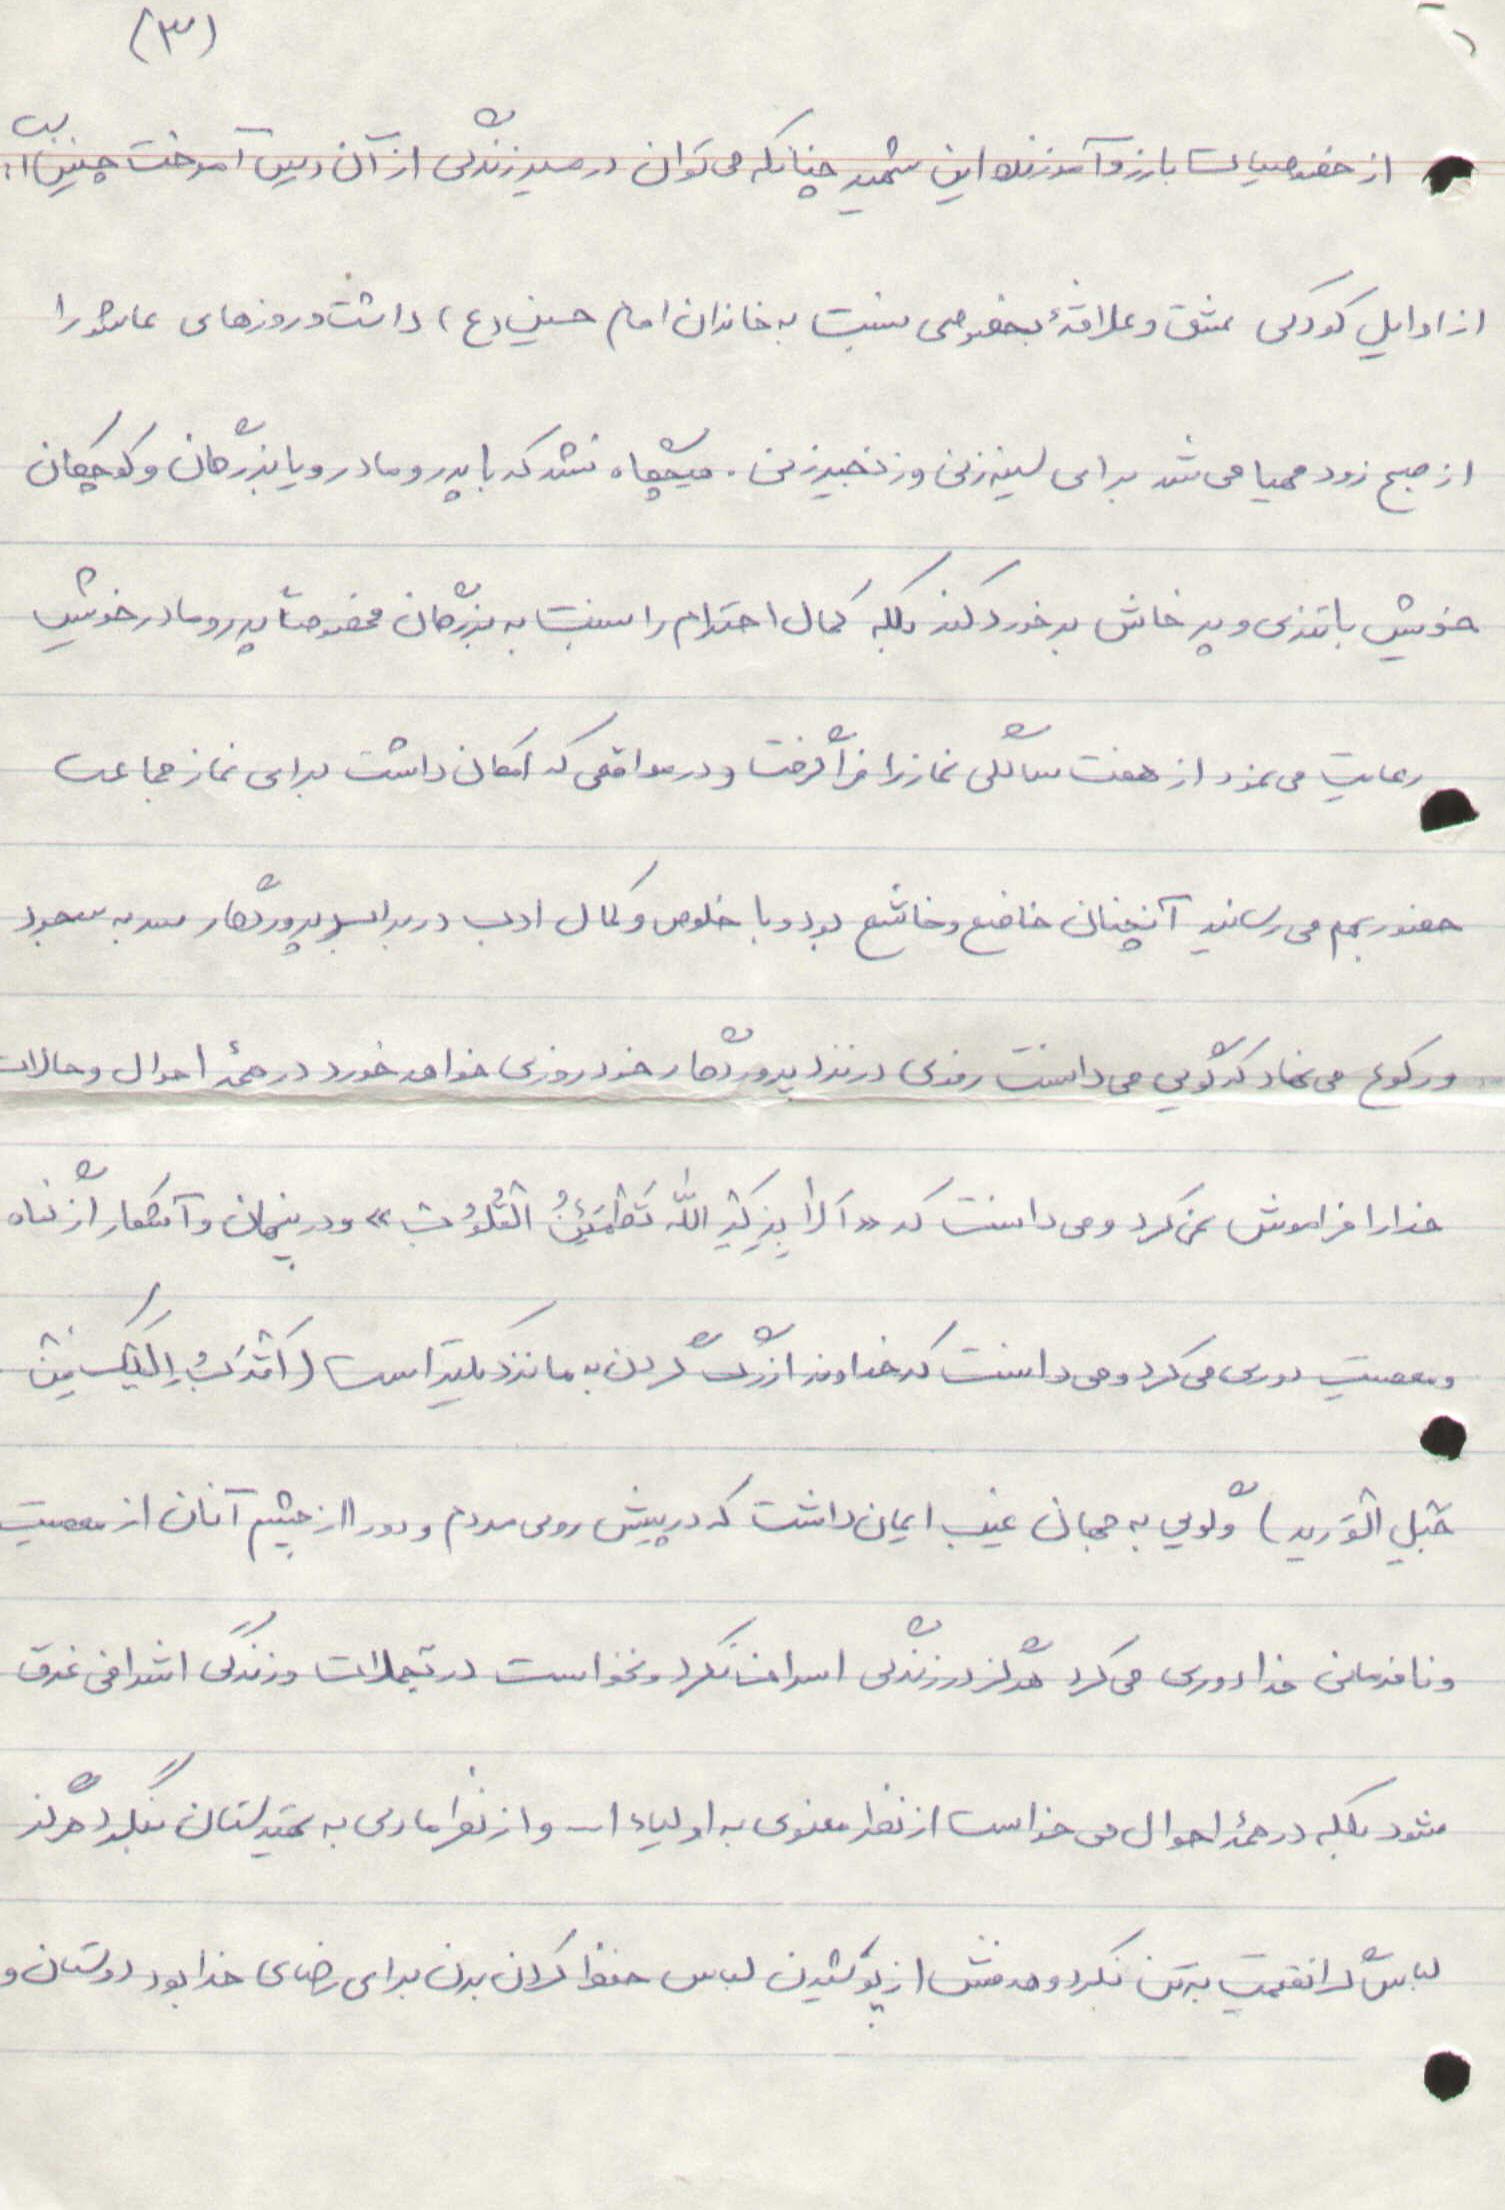 (۳)
از خصوصیات بارز و آموزنده این شهید چنانکه می توان در مسیر زندگی از آن درس آموخت چنین
از اوایل کودکی عشق و علاقهٔ بخصوصی نسبت به خاندان امام حسین (ع) داشت و روزهای عاشورا
از صبح زود مهیا می شد برای سینه زنی و زنجیرزنی . هیچگاه نشد که با پدر و مادر و یا بزرگان و کوچکان
خویش با تندی و پرخاش برخورد کند بلکه کمال احترام را نسبت به بزرگان مخصوصاً پدر و مادر خویش
رعایت می نمود از هفت سالگی نماز را فرا گرفت و در مواقعی که امکان داشت برای نماز جماعت
حضور بهم می رسانید آنچنان خاضع و خاشع بود و با خلوص و کمال ادب در برابر پروردگار سر به سجود
و رکوع می نهاد که گویی می دانست روزی در نزد پروردگار خود روزی خواهد خورد در همهٔ احوال و حالات
خدا را فراموش نمی کرد و می دانست که «اَلا بِذِکْرِ اللّه تَطْمَئِنُّ القُلُوُب» و در پنهان و آشکار از گناه
و معصیت دوری می کرد و می دانست که خداوند از رگ گردن به ما نزدیکتر است (اَقْرَبُ اِلَیْکُم مِنْ
حَبلِ الْوَرید) و گویی به جهان غیب ایمان داشت که در پیش روی مردم و دور از چشم آنان از معصیت
و نافرمانی خدا دوری می کرد هرگز در زندگی اسراف نکرد و نخواست در تجملات و زندگی اشرافی غرق
شود بلکه در همهٔ احوال می خواست از نظر معنوی به اولیاء ا... و از نظر مادی به تهیدستان بنگرد هرگز
لباس گرانقیمت به تن نکرد و هدفش از پوشیدن لباس حفظ کردن بدن برای رضای خدا بود دوستان و